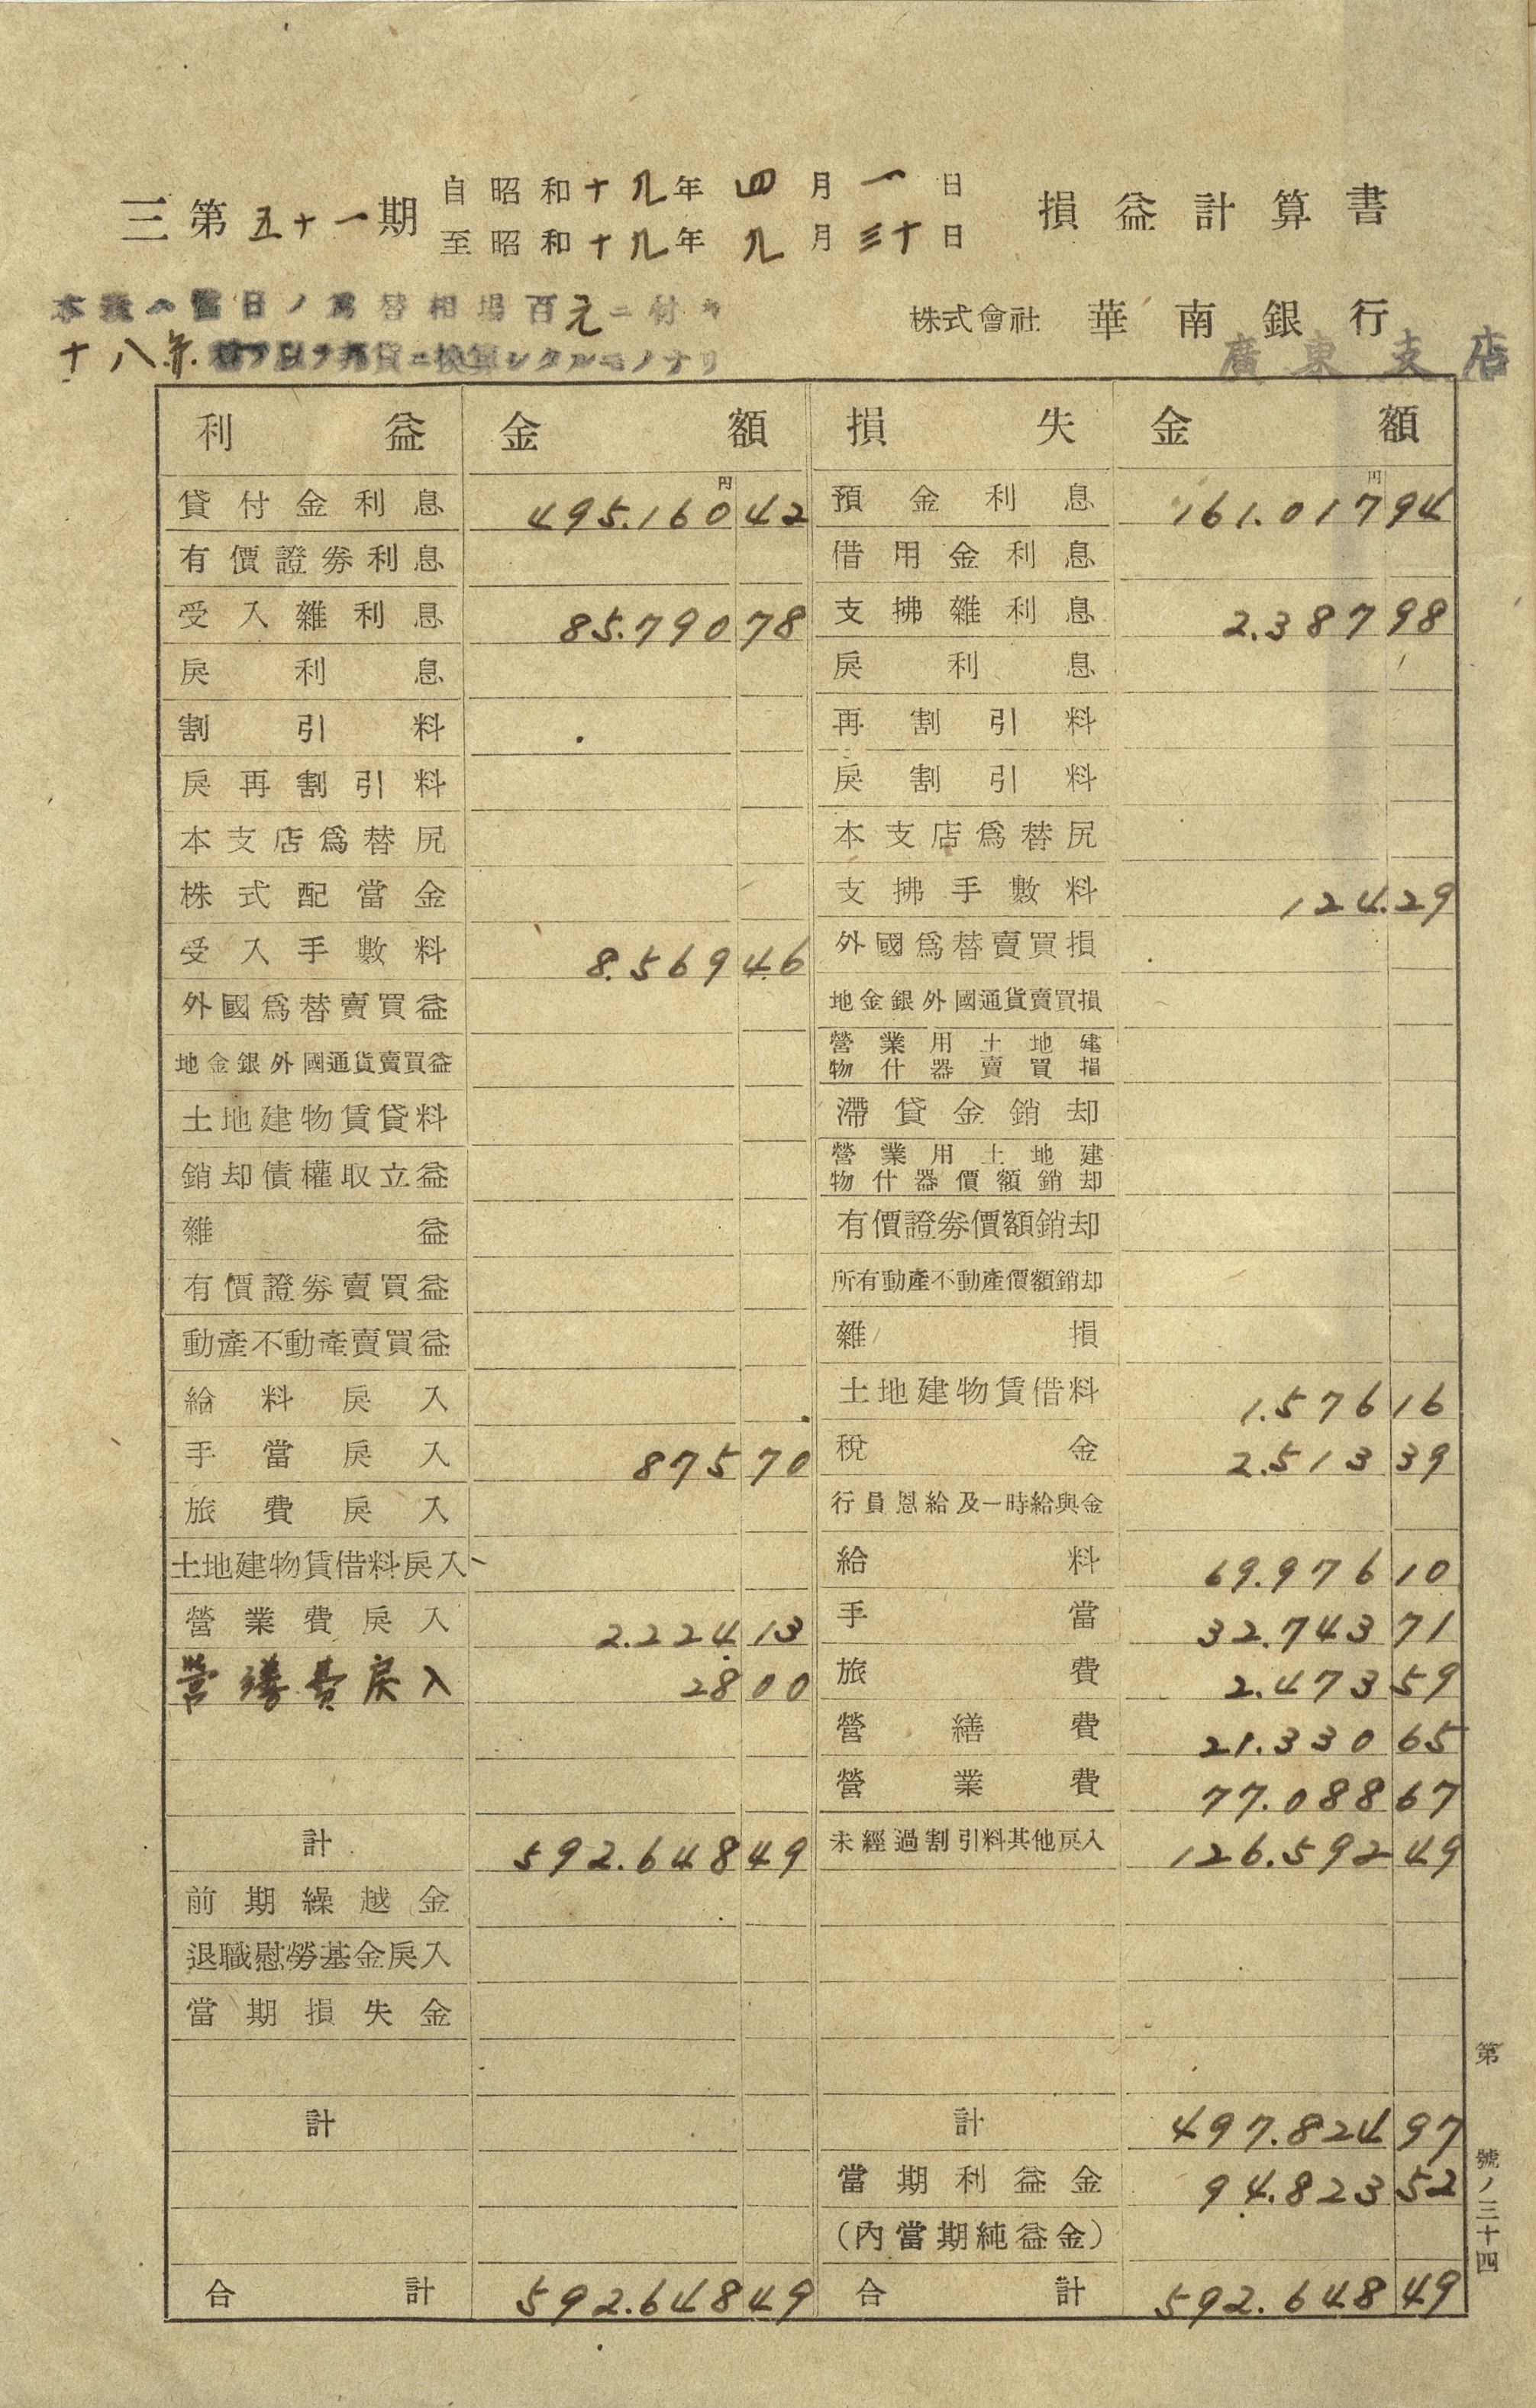 三第五十一期 自昭和十九年四月一日 至昭和十九年九月三十日 損益計算書
本表ハ當日ノ爲替相場百元ニ付キ
十八弗 替ヲ以テ邦貨ニ換算シタルモノナリ
株式會社 華南銀行
廣東支店
利益 金額 損失 金額
円 円
貸付金利息 495.160 42 預金利息 161.017 94
有價證券利息 借用金利息
受入雜利息 85.790 78 支拂雜利息 2.387 98
戾利息 戾利息
割引料 再割引料
戾再割引料 戾割引料
本支店爲替尻 本支店爲替尻
株式配當金 支拂手數料 124.29
受入手數料 8.569 46 外國爲替賣買損
外國爲替賣買益 地金銀外國通貨賣買損
地金銀外國通貨賣買益 營業用土地建物什器賣買損
土地建物賃貸料 滯貸金銷却
銷却債權取立益 營業用土地建物什器價額銷却
雜益 有價證券價額銷却
有價證券賣買益 所有動產不動產價額銷却
動產不動產賣買益 雜損
給料戾入 土地建物賃借料 1.576 16
手當戾入 875 70 稅金 2.513 39
旅費戾入 行員恩給及一時給與金
土地建物賃借料戾入 給料 69.976 10
營業費戾入 2.224 13 手當 32.743 71
營繕費戾入 28 00 旅費 2.473 59
營繕費 21.330 65
營業費 77.088 67
計 592.648 49 未經過割引料其他戾入 126.592 49
前期繰越金
退職慰勞基金戾入
當期損失金
計 計 497.824 97
當期利益金 94.823 52
(內當期純益金)
合計 592.648 49 合計 592.648 49
第 號ノ三十四